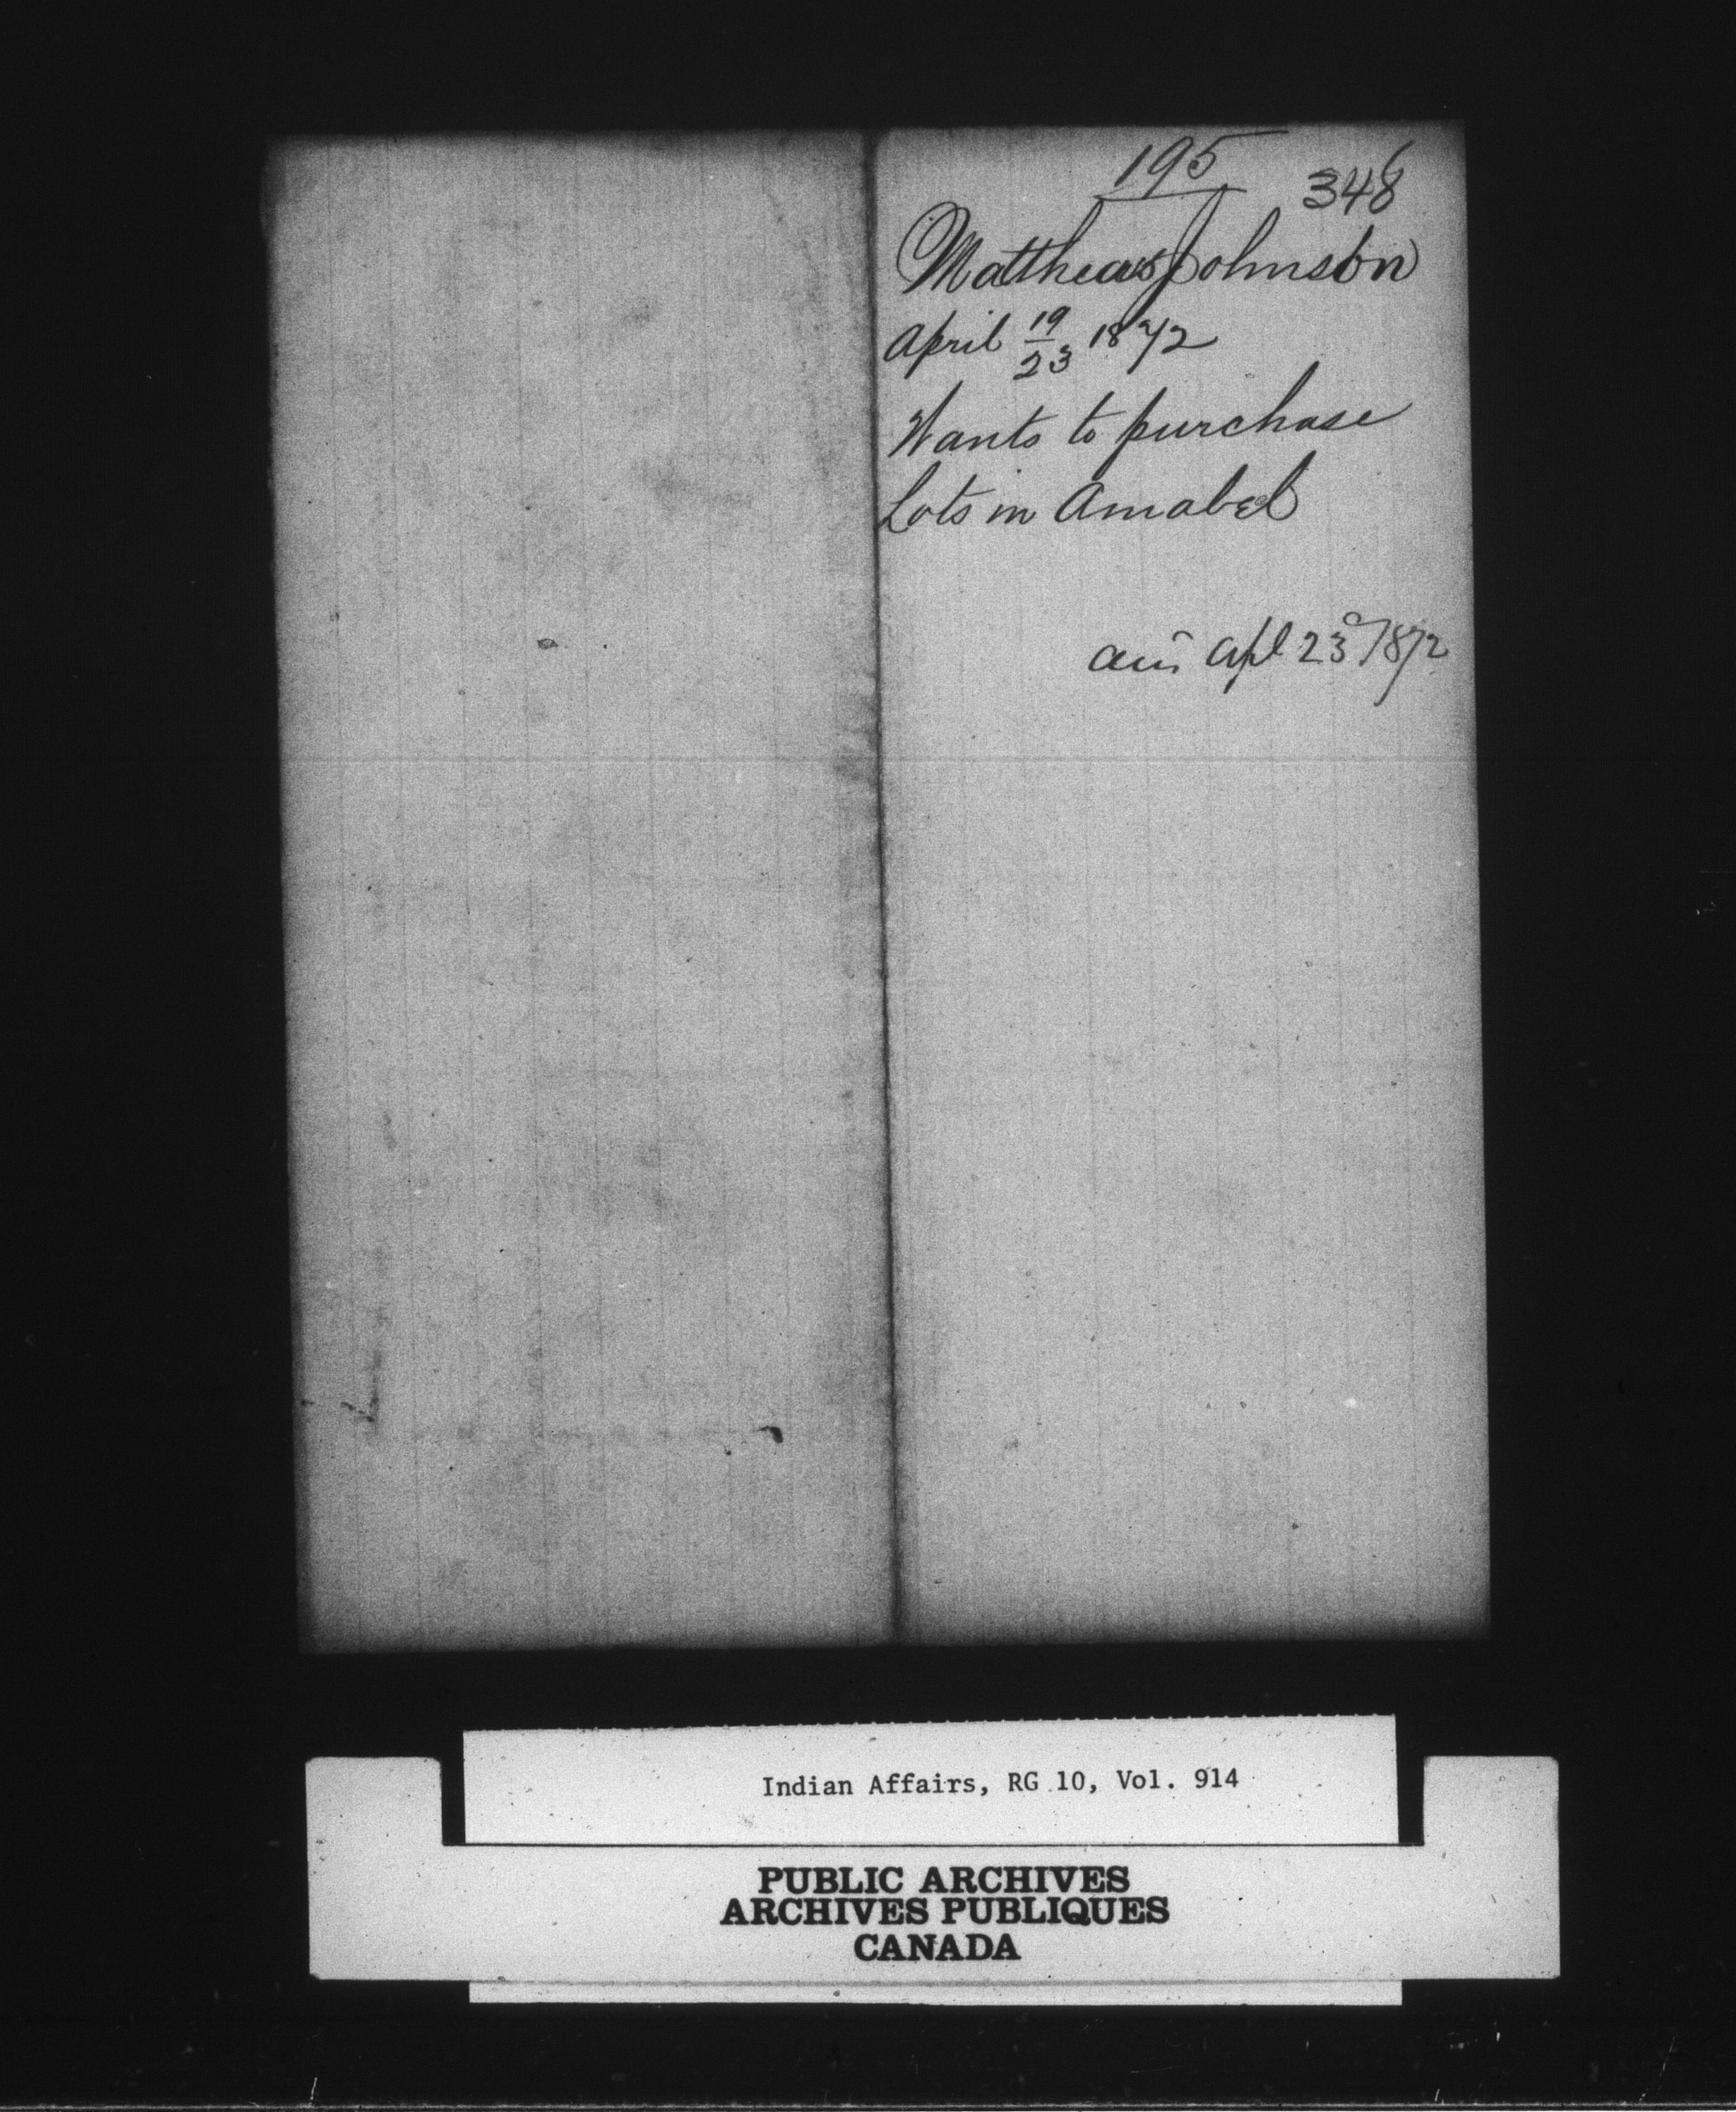 195
348
Matthew Johnson
April 19/23 1872
Wants to purchase
Lots in Amabel
Apl 23d 1872
Indian Affairs, RG 10, Vol. 914
PUBLIC ARCHIVES
ARCHIVES PUBLIQUES
CANADA